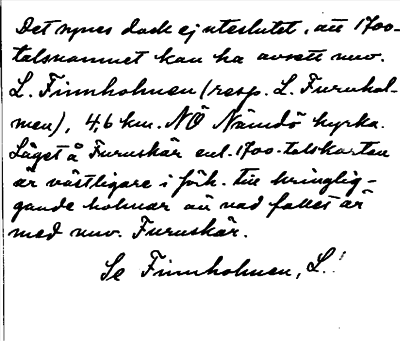 Det synes dock ej uteslutet, att 1700-
talsnamnet kan ha avsett nuv.
L. Finnholmen (resp. L. Furuhol-
men), 4,6 km. NÖ Nämdö kyrka.
Läget å Furuskär enl. 1700-talskartan
är västligare i förh. till kringlig-
gande holmar än vad fallet är
med nuv. Furuskär.
Se Finnholmen, L.